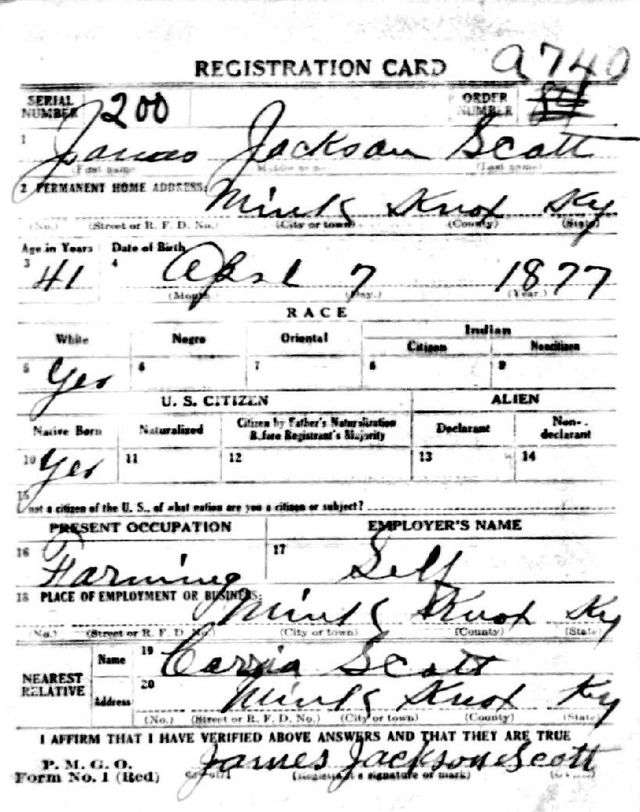 REGISTRATION CARD a740
SERIAL NUMBER 1200 ORDER NUMBER
1 James Jackson Scott
(First name) (Middle name) (Last name)
2 PERMANENT HOME ADDRESS: Mink Knox Ky
(No.) (Street or R. F. D. No.) (City or town) (County) (State)
Age in Years Date of Birth
3 41 4 April 7 1877
(Month.) (Day.) (Year.)
RACE
White Negro Oriental Indian
Citizen Noncitizen
5 Yes 6 7 8 9
U. S. CITIZEN ALIEN
Native Born Naturalized Citizen by Father's Naturalization Before Registrant's Majority Declarant Non-declarant
10 Yes 11 12 13 14
15
not a citizen of the U. S., of what nation are you a citizen or subject?
PRESENT OCCUPATION EMPLOYER'S NAME
16 Farming 17 Self
18 PLACE OF EMPLOYMENT OR BUSINESS: Mink Knox Ky
(No.) (Street or R. F. D. No.) (City or town) (County) (State)
NEAREST RELATIVE Name 19 Scott
Address 20 Mink Knox Ky
(No.) (Street or R. F. D. No.) (City or town) (County) (State)
I AFFIRM THAT I HAVE VERIFIED ABOVE ANSWERS AND THAT THEY ARE TRUE
P. M. G. O.
Form No. 1 (Red) James Jackson Scott
(Registrant's signature or mark)